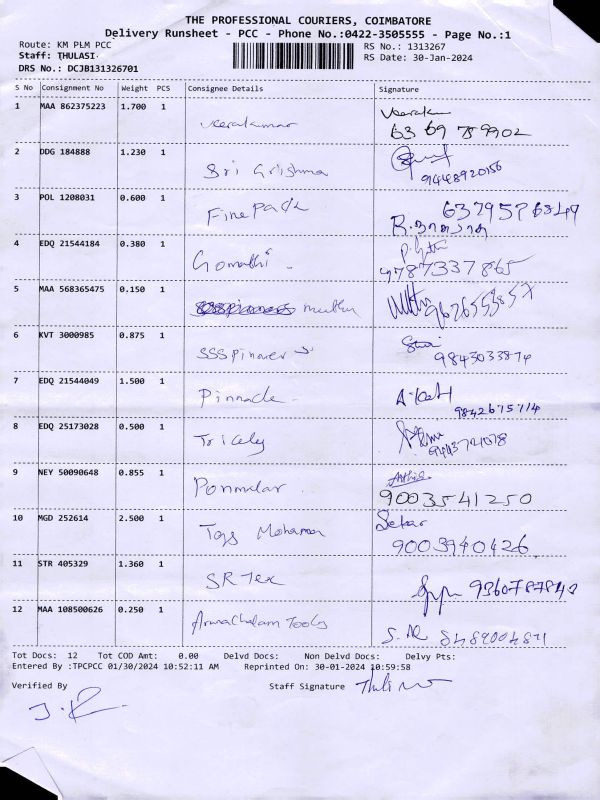 THE PROFESSIONAL COURIERS, COIMBATORE
Delivery Runsheet - PCC - Phone No.:0422-3505555 - Page No.:1
Route: KM PLM PCC
RS No.: 1313267
Staff: THULASI
RS Date: 30-Jan-2024
DRS No.: DCJB131326701
S No Consignment No Weight PCS Consignee Details Signature
1 MAA 862375223 1.700 1 Veerakumar Veerakum
63 69 789902
2 DDG 184888 1.230 1 Sri Grishma
94489 20156
3 POL 1208031 0.600 1 Fine Pack
4 EDQ 21544184 0.380 1 Gomathi
9787337865
5 MAA 568365475 0.150 1 muthu
6 KVT 3000985 0.875 1 SSS Pinover
9843033874
7 EDQ 21544049 1.500 1 Pinnacle
9842675714
8 EDQ 25173028 0.500 1
9 NEY 50090648 0.855 1 Ponmalar
9003541250
10 MGD 252614 2.500 1 Mohanan Sekar
9003940426
11 STR 405329 1.360 1 SR Tex 9360787842
12 MAA 108500626 0.250 1 Arunachalam Tools
Tot Docs: 12 Tot COD Amt: 0.00 Delvd Docs: Non Delvd Docs: Delvy Pts:
Entered By :TPCPCC 01/30/2024 10:52:11 AM Reprinted On: 30-01-2024 10:59:58
Verified By Staff Signature